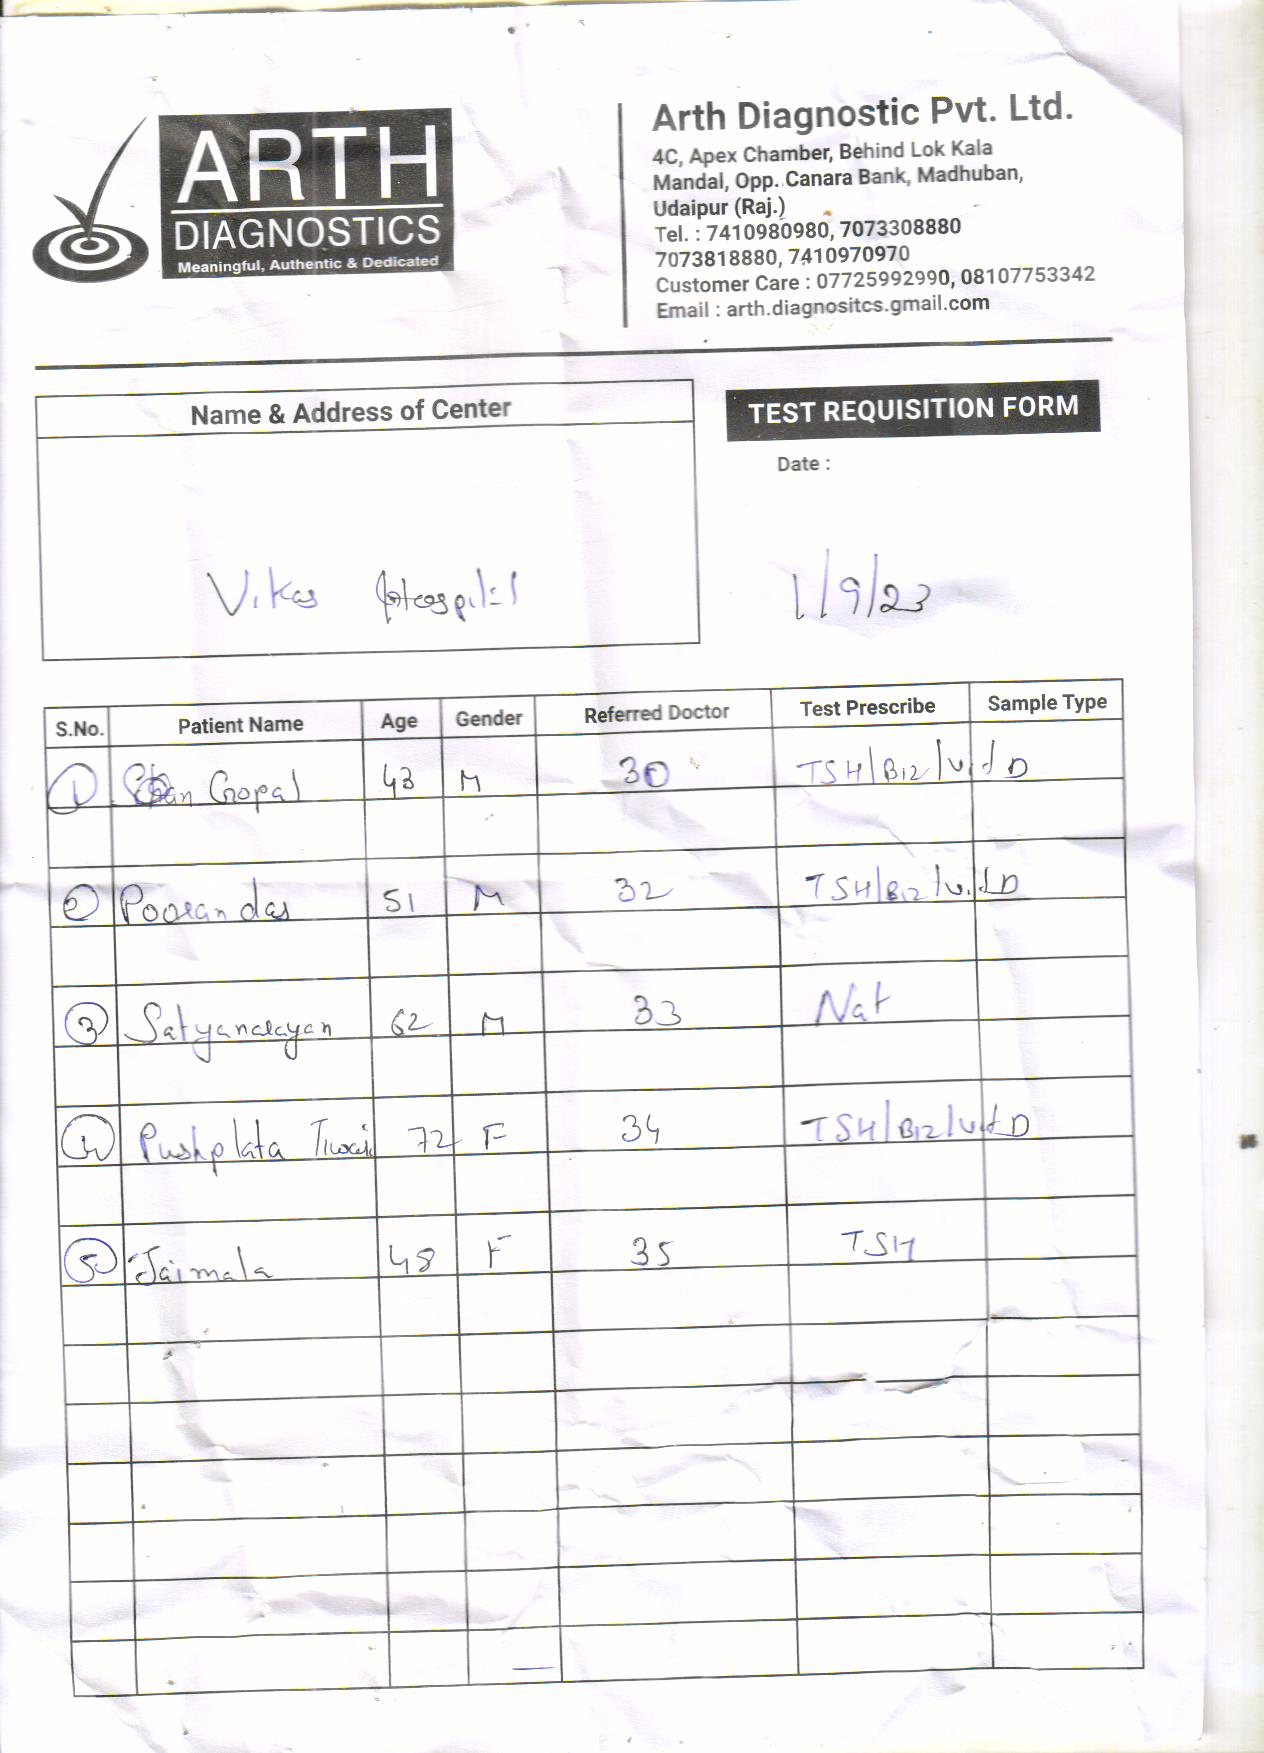 ARTH
DIAGNOSTICS
Meaningful, Authentic & Dedicated
Arth Diagnostic Pvt. Ltd.
4C, Apex Chamber, Behind Lok Kala
Mandal, Opp. Canara Bank, Madhuban,
Udaipur (Raj.)
Tel. : 7410980980, 7073308880
7073818880, 7410970970
Customer Care : 07725992990, 08107753342
Email : arth.diagnositcs.gmail.com
Name & Address of Center
Vikas Hospital
TEST REQUISITION FORM
Date :
1/9/23
S.No. Patient Name Age Gender Referred Doctor Test Prescribe Sample Type
1 Gopal 43 M 30 TSH/B12/vit D
2 Pooran das 51 M 32 TSH/B12/vit D
3 Satyanarayan 62 M 33 Nat
4 Pushplata Tiwari 72 F 34 TSH/B12/vit D
5 Jaimala 48 F 35 TSH